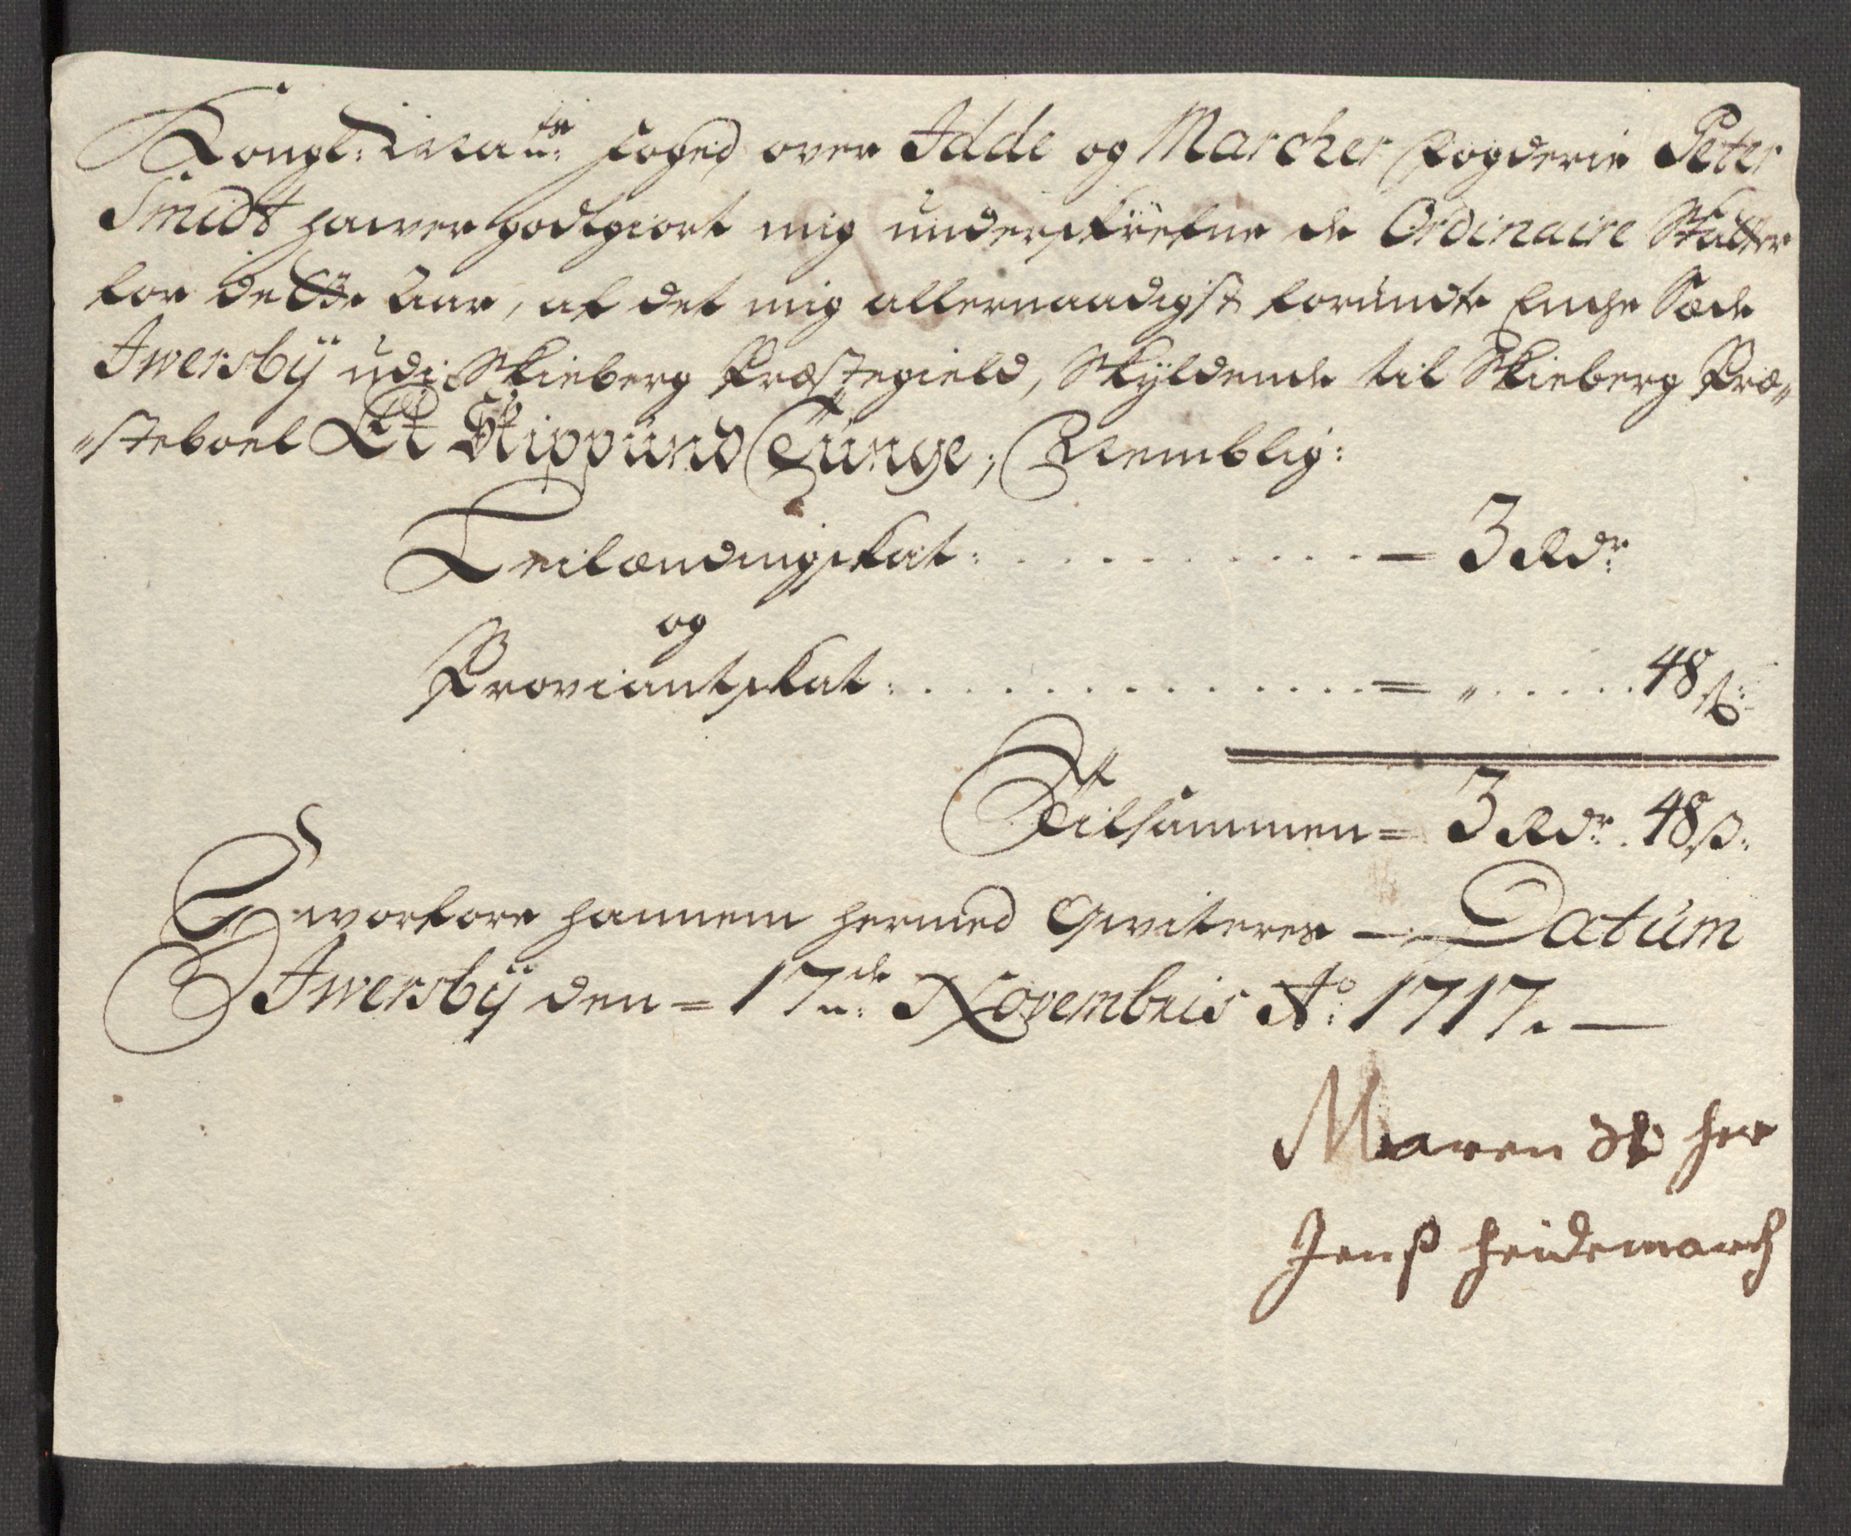 Kongl: Maÿts: Foged over Idde og Marcher Fogderie Peter
Smidt hawer godtgiort mig underskrefne de Ordinaire Skatter
for dette Aar, af det mig allernaadigst forundte Enche Sæde
Iwersbÿ udi Skieberg Præstegield, Skÿldende til Skieberg Præ„
„steboel Et Skippund Tunge, Nemblig:
Leilændingskat: = 3 Rdr
og
Proviantskat: = „ 48 ß:
Tilsammen = 3 Rdr. 48 ß:
Hworfore hannem hermed Qwiteres — Datum
Iwersbÿ den = 17de: Novembris Ao: 1717. —
Maren Sl her
Jenß heidemarch